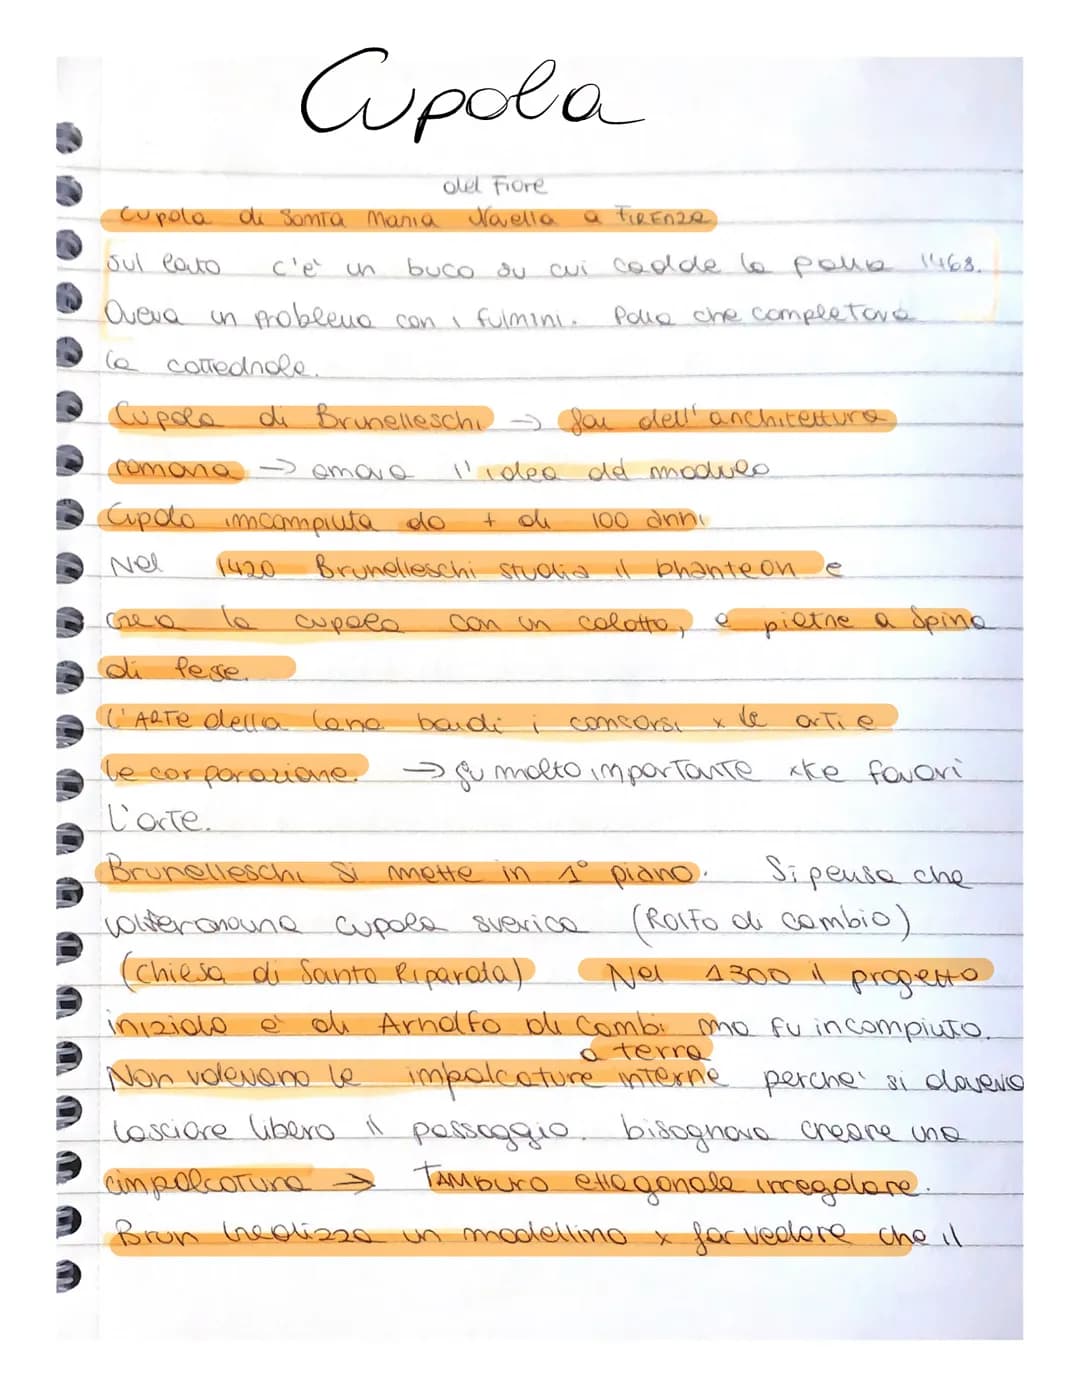 Cupola
del Fiore
Cupola di Santa Maria Novella a FIRENZE
Sul lato c'è un buco su cui cadde la palla 1468.
Aveva un problema con i fulmini. Palla che completava
la cattedrale.
Cupola di Brunelleschi → fan dell'architettura
romana → amava l'idea del modulo
Cupola incompiuta da + di 100 anni
Nel 1420 Brunelleschi studia il phanteon e
crea la cupola con un calotta, e pietre a spina
di pesce.
L'ARTE della lana bandì i concorsi x le arti e
le corporazione. → fu molto importante xke favorì
l'arte.
Brunelleschi si mette in 1° piano. Si pensa che
una cupola sverica (Rolfo di cambio)
(chiesa di Santa Riparata) Nel 1300 il progetto
iniziale è di Arnolfo di Cambi ma fu incompiuto.
a terra
Non volevano le impalcature interne perche' si doveva
lasciare libero il passaggio. bisognava creare una
impalcatura → TAMBURO ettagonale irregolare.
Brun realizza un modellino x far vedere che il